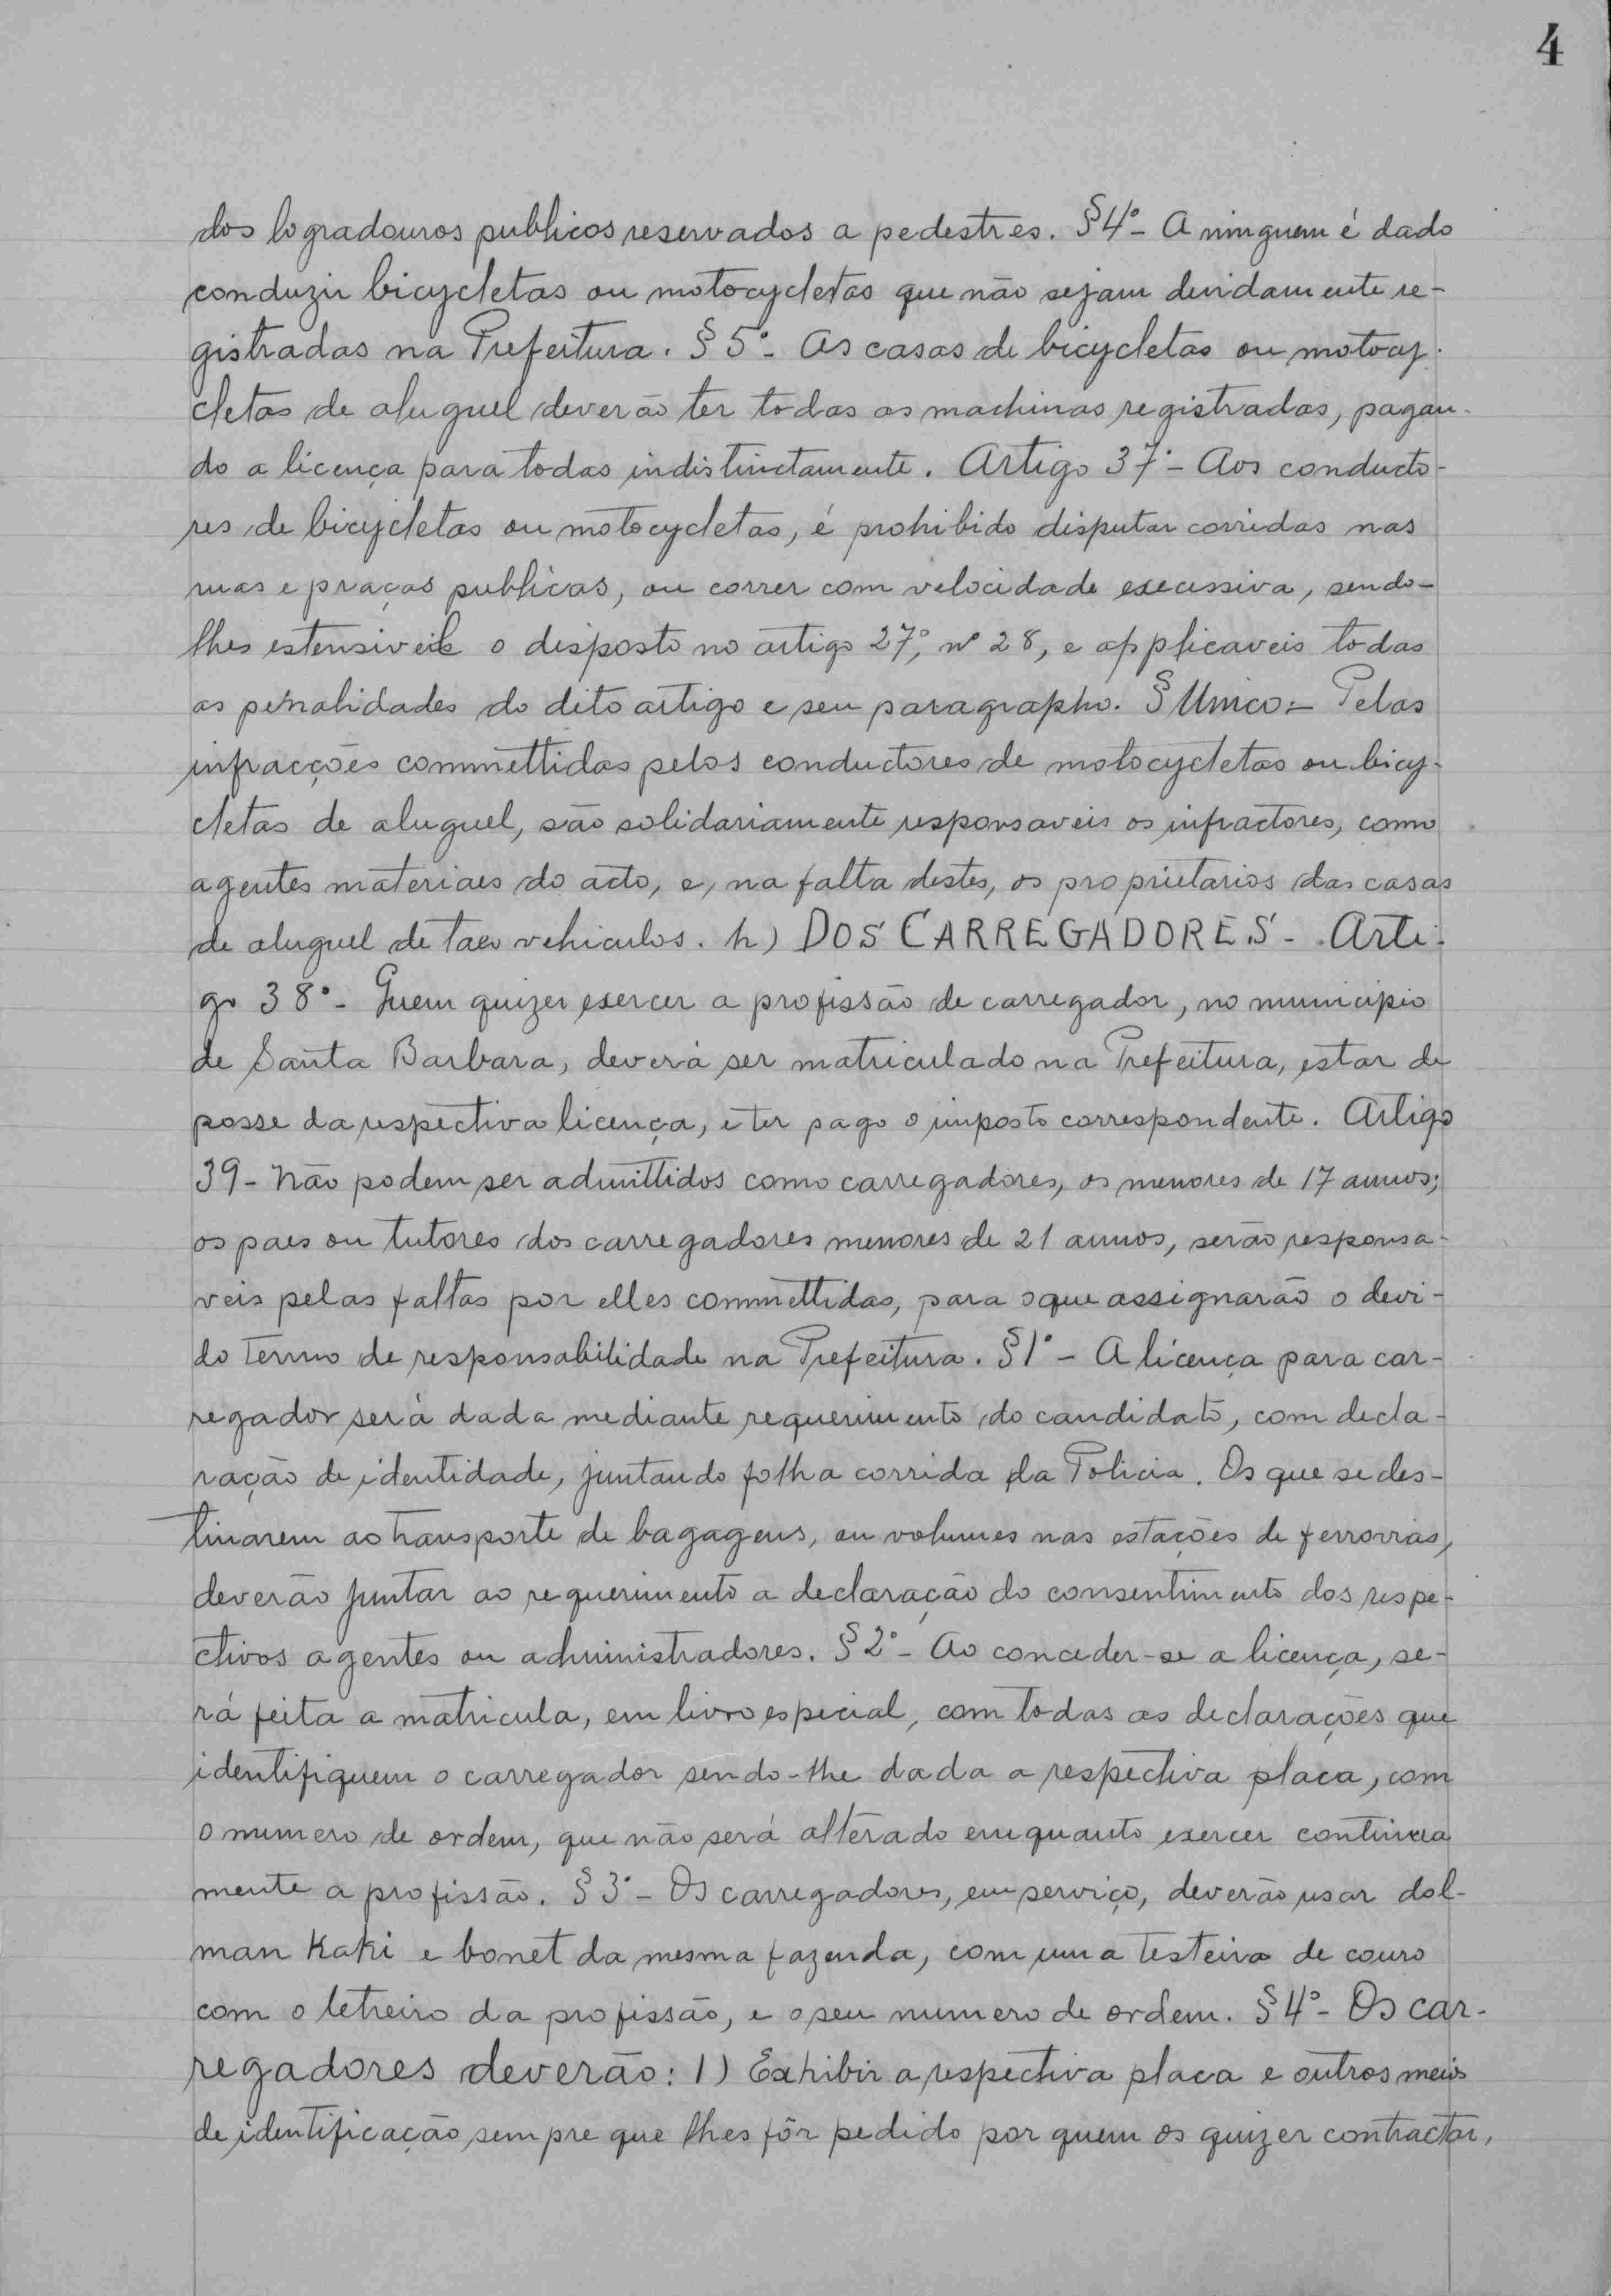 4
dos logradouros publicos reservados a pedestres. § 4º - A ninguem é dado
conduzir bicycletas ou motocycletas que não sejam devidamente re-
gistradas na Prefeitura. § 5º - As casas de bicycletas ou motocy-
cletas de aluguel deverão ter todas as machinas registradas, pagan-
do a licença para todas indistinctamente. Artigo 37º - Aos conducto-
res de bicycletas ou motocycletas, é prohibido disputar corridas nas
ruas e praças publicas, ou correr com velocidade execessiva, sendo-
lhes estensiveis o disposto no artigo 27º, nº 28, e applicaveis todas
as penalidades do dito artigo e seu paragrapho. § Unico:- Pelas
infracções commettidas pelos conductores de motocycletas ou bicy-
cletas de aluguel, são solidariamente responsaveis os infractores, como
agentes materiaes do acto, e, na falta destes, os proprietarios das casas
de aluguel de taes vehiculos. h) DOS CARREGADORES - Arti-
go 38º - Quem quizer exercer a profissão de carregador, no municipio
de Santa Barbara, deverá ser matriculado na Prefeitura, estar de
posse da respectiva licença, e ter pago o imposto correspondente. Artigo
39 - Não podem ser admittidos como carregadores, os menores de 17 annos;
os paes ou tutores dos carregadores menores de 21 annos, serão responsa-
veis pelas faltas por elles commettidas, para o que assignarão o devi-
do termo de responsabilidade na Prefeitura. § 1º - A licença para car-
regador será dada mediante requerimento do candidato, com decla-
ração de identidade, juntando folha corrida da Policia. Os que se des-
tinarem ao transporte de bagagens, ou volumes nas estações de ferrovias,
deverão juntar ao requerimento a declaração do consentimento dos respe-
ctivos agentes ou administradores. § 2º - Ao conceder-se a licença, se-
rá feita a matricula, em livro especial, com todas as declarações que
identifiquem o carregador sendo-lhe dada a respectiva placa, com
o numero de ordem, que não será alterado emquanto exercer continua
mente a profissão. § 3º - Os carregadores, em serviço, deverão usar dol-
man Kaki e bonet da mesma fazenda, com uma testeira de couro
com o letreiro da profissão, e o seu numero de ordem. § 4º - Os car-
regadores deverão: 1) Exhibir a respectiva placa e outros meios
de identificação sempre que lhes fôr pedido por quem os quizer contractar,